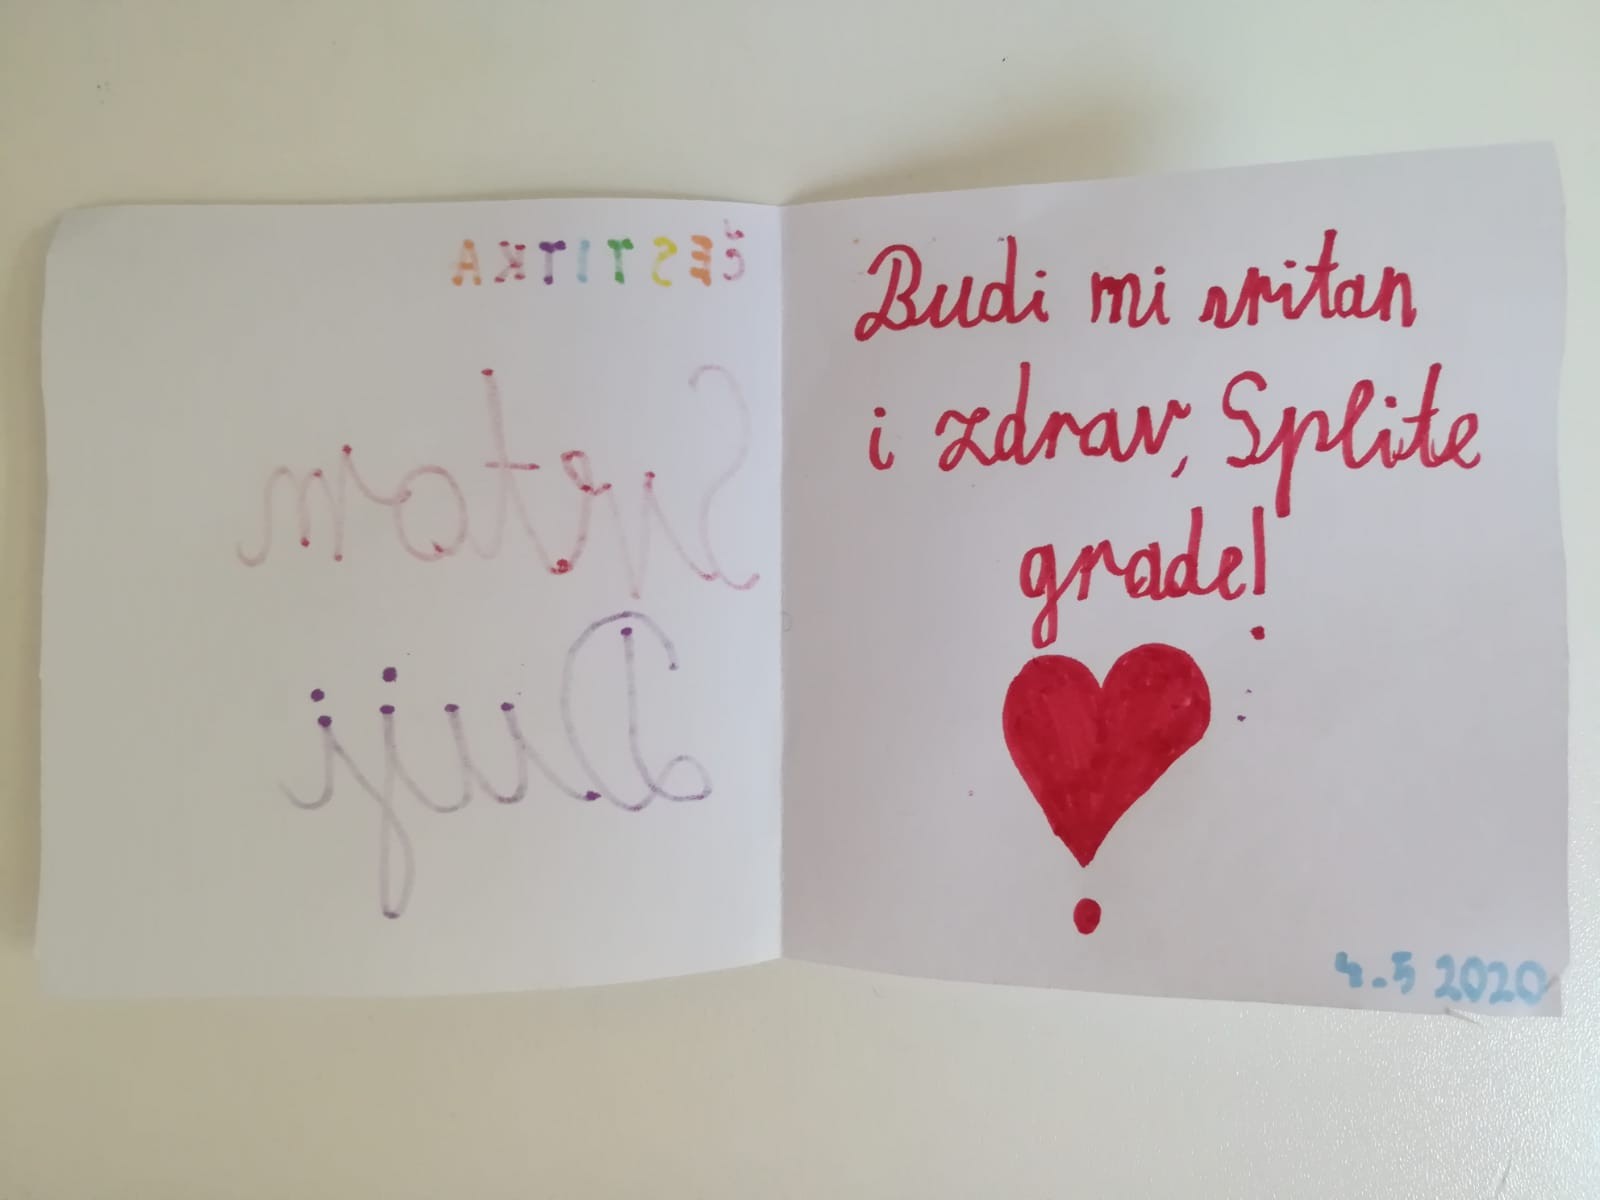 ČESTITKA
Svetom
Duji
Budi mi sritan
i zdrav, Splite
grade!
4.5 2020